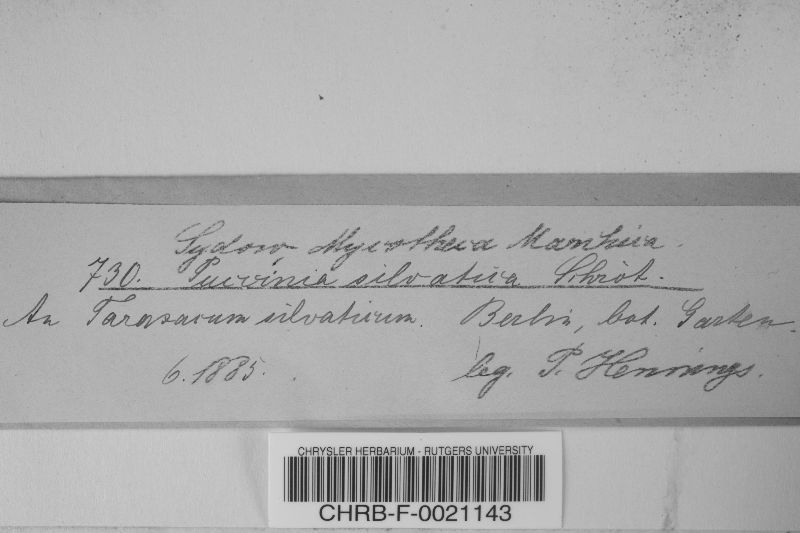 Sydow, Mycotheca Marchica.
730. Puccinia silvatica Schröt.
An Taraxacum silvaticum. Berlin, bot. Garten.
6.1885. leg. P. Hennings.
CHRYSLER HERBARIUM - RUTGERS UNIVERSITY
CHRB-F-0021143